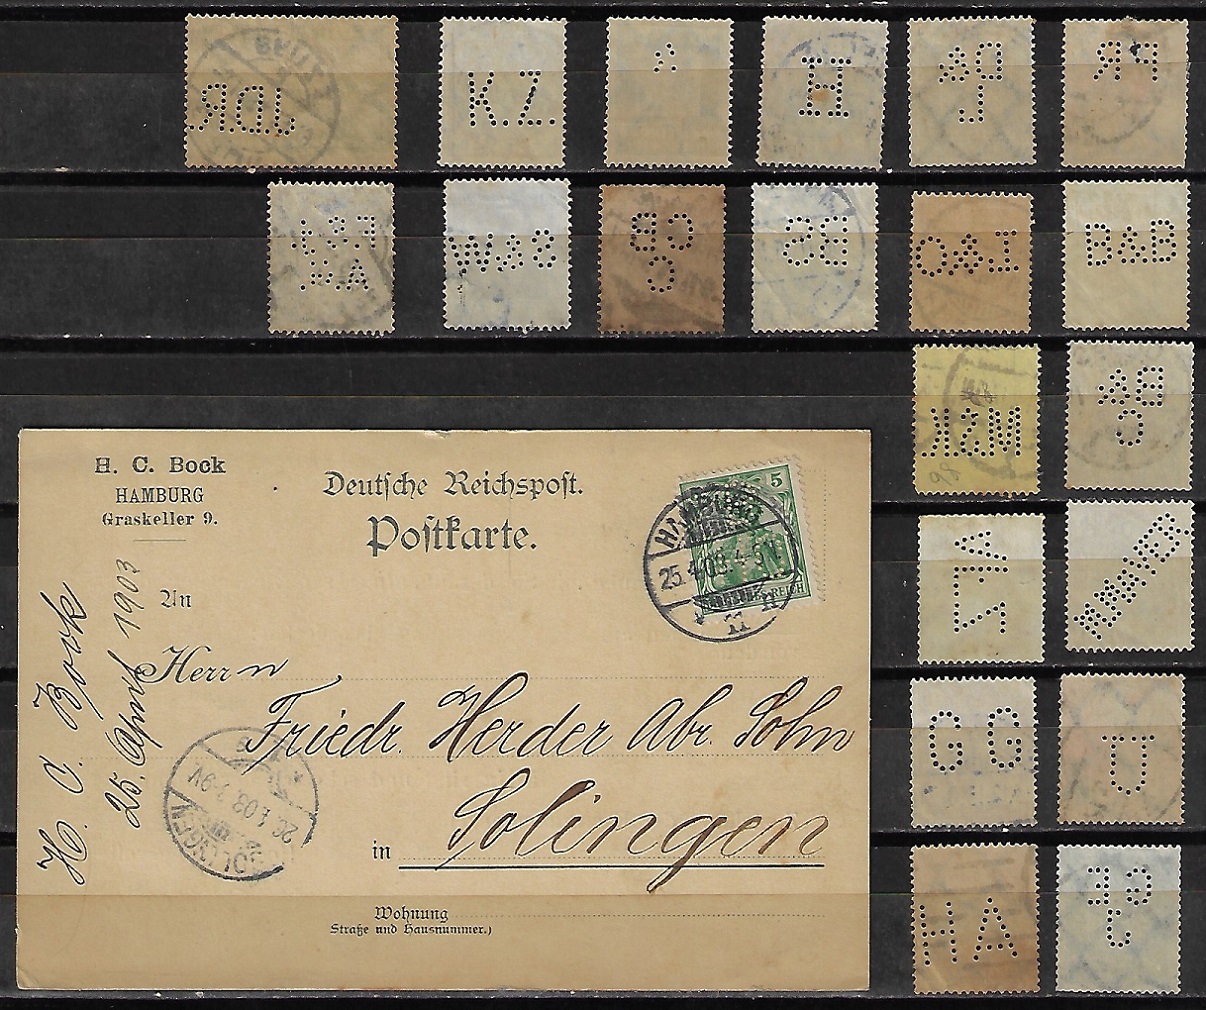 J.D.R.
K.Z.
A
H
D&
L
RP
F.&J.
P.A.
W&S
CB
C
BS
O&I
B&B
K&M
&B
C
A.-
Z
M.MAIVER
G G
U
H A
CF
J
H. C. Bock
HAMBURG
Graskeller 9.
Deutsche Reichspost.
Postkarte.
5
HAMBURG
25.4.03.4-5N.
11
REICH
H. C. Bock
25. April 1903
An
Herrn
Friedr. Herder Abr. Sohn
in Solingen
SOLINGEN
26.4.03.
Wohnung
(Straße und Hausnummer.)